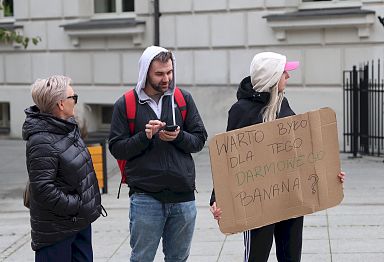 WARTO BYŁO
DLA TEGO
DARMOWEGO
BANANA ?